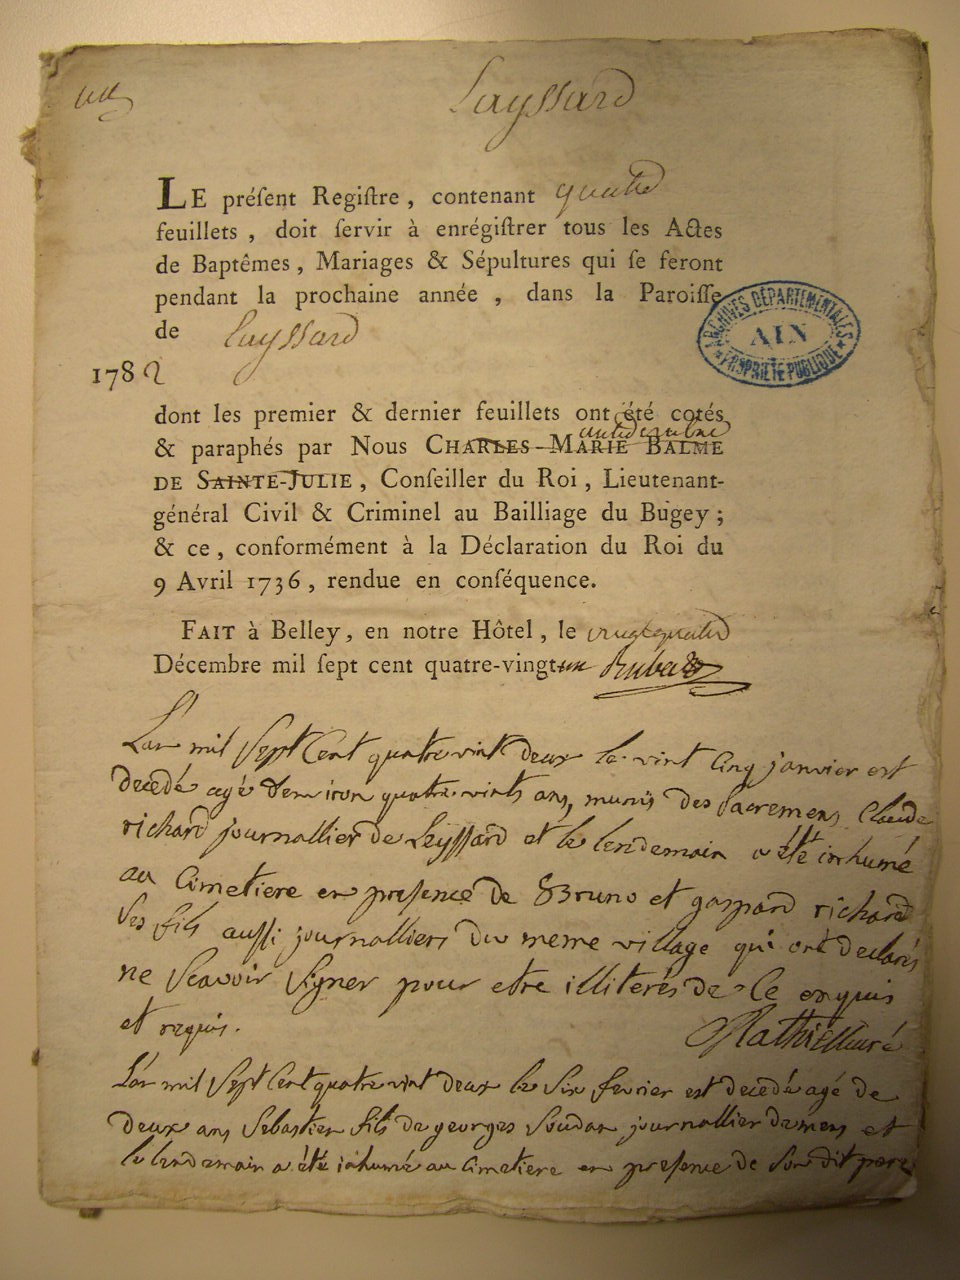 Layssard
LE préſent Regiſtre, contenant quatre
feuillets, doit ſervir à enrégiſtrer tous les Actes
de Baptêmes, Mariages & Sépultures qui ſe feront
pendant la prochaine année, dans la Paroiſſe
de Layssard
ARCHIVES DÉPARTEMENTALES
AIN
PROPRIÉTÉ PUBLIQUE
1782
dont les premier & dernier feuillets ont été cotés
& paraphés par Nous CHARLES-MARIE BALME
DE SAINTE-JULIE, Conſeiller du Roi, Lieutenant-
général Civil & Criminel au Bailliage du Bugey;
& ce, conformément à la Déclaration du Roi du
9 Avril 1736, rendue en conſéquence.
FAIT à Belley, en notre Hôtel, le vingt quatre
Décembre mil ſept cent quatre-vingt un
L'an mil Sept Cent quatre vint deux le vint Cinq janvier est
decedé agé d'environ quatre-vints ans, munis des Sacremens Claude
richard journallier de Leyssard et le lendemain a été inhumé
au Cimetiere en presence de Bruno et gaspard richard
Ses fils aussi journalliers du meme village qui ont declarés
ne Scavoir Signer pour etre illiterés de Ce enquis
et requis.
L'an mil Sept Cent quatre vint deux le Six fevrier est decedé agé de
deux ans Sebastien fils de georges Soudan journallier et
le lendemain a été inhumé au Cimetiere en presence de Son dit pere